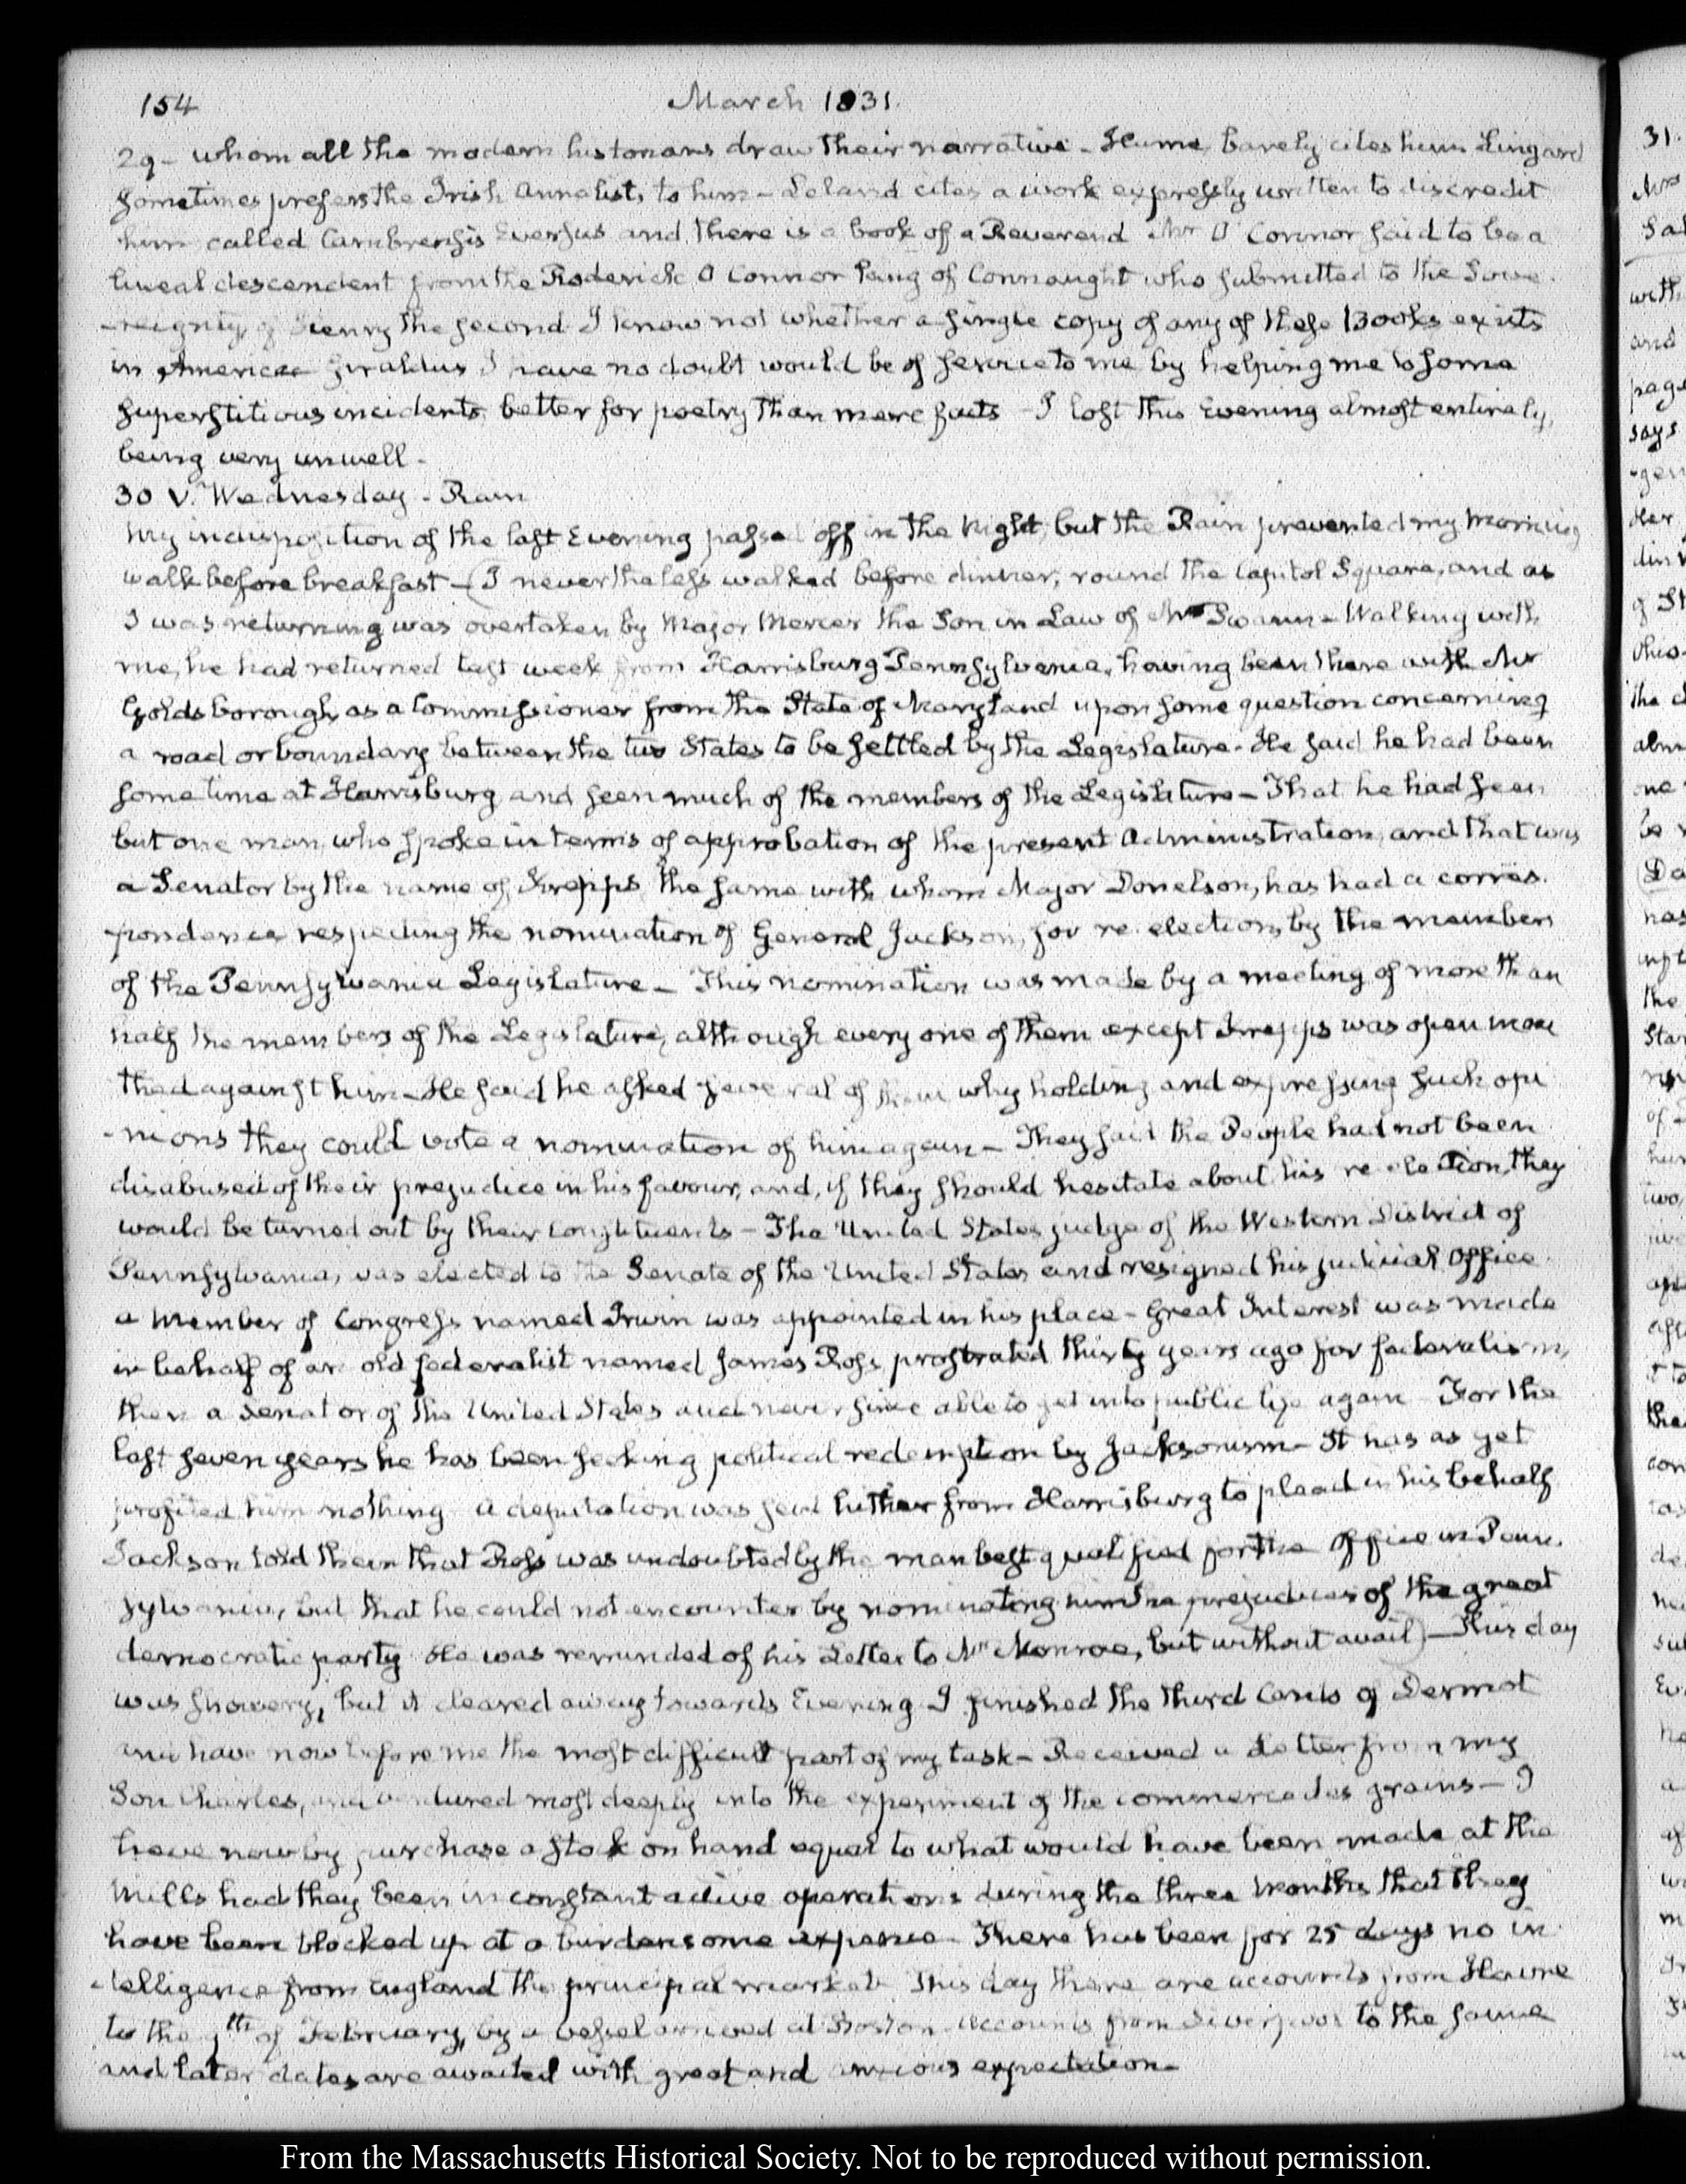 154 March 1831.
29- whom all the modern historians draw their narrative - Hume, barely cites him Lingard
sometimes prefers the Irish Annalist, to him - Leland cites a work expressly written to discredit
him called Cambrensis Eversus and there is a book of a Reverend Mr O'Connor said to be a
lineal descendent from the Roderick O Connor King of Connaught who submitted to the Sove-
-reignty of Henry the second. I know not whether a single copy of any of these Books exists
in America Giraldus I have no doubt would be of service to me by helping me to some
superstitious incidents better for poetry than mere facts - I lost this Evening almost entirely,
being very unwell -
30 V. Wednesday - Rain
My indisposition of the last Evening passed off in the Night, but the Rain prevented my morning
walk before breakfast - (I nevertheless walked before dinner, round the Capitol Square, and as
I was returning was overtaken by Major Mercer the Son in Law of Mr Swann - Walking with
me, he had returned last week from Harrisburg Pennsylvania, having been there with Mr
Goldsborough, as a Commissioner from the State of Maryland upon some question concerning
a road or boundary between the two States to be settled by the Legislature - He said he had been
some time at Harrisburg and seen much of the members of the Legislature - That he had seen
but one man who spoke in terms of approbation of the present Administration, and that was
a Senator by the name of Krepps the same with whom Major Donelson, has had a corres-
-pondence respecting the nomination of General Jackson, for re election, by the members
of the Pennsylvania Legislature - This nomination was made by a meeting of more than
half the members of the Legislature, although every one of them except Krepps was open mou
thed against him - He said he asked several of them why holding and expressing such opi
-nions they could vote a nomination of him again - They said the People had not been
disabused of their prejudice in his favour, and, if they should hesitate about his re election, they
would be turned out by their constituents - The United States judge of the Western District of
Pennsylvania, was elected to the Senate of the United States and resigned his judicial Office.
a Member of Congress named Irwin was appointed in his place - Great Interest was made
in behalf of an old federalist named James Ross prostrated thirty years ago for federalism,
then a Senator of the United States and never since able to get into public life again - For the
last seven years he has been seeking political redemption by Jacksonism - It has as yet
profited him nothing a deputation was sent hither from Harrisburg to plead in his behalf
Jackson told them that Ross was undoubtedly the man best qualified for the Office in Penn-
sylvania, but that he could not encounter by nominating him the prejudices of the great
democratic party He was reminded of his Letter to Mr Monroe, but without avail) - This day
was showery, but it cleared away towards Evening I finished the third Canto of Dermot
and have now before me the most difficult part of my task - Received a Letter from my
Son Charles, and ventured most deeply into the experiment of the commerce des grains - I
have now by purchase a stock on hand equal to what would have been made at the
Mills had they been in constant active operations during the three Months that they
have been blocked up at a burdensome expense - There has been for 25 days no in
-telligence from England the principal market. This day there are accounts from Havre
to the 9th of February, by a vessel arrived at Boston - Accounts from Liverpool to the same
and later dates are awaited with great and anxious expectation -
From the Massachusetts Historical Society. Not to be reproduced without permission.